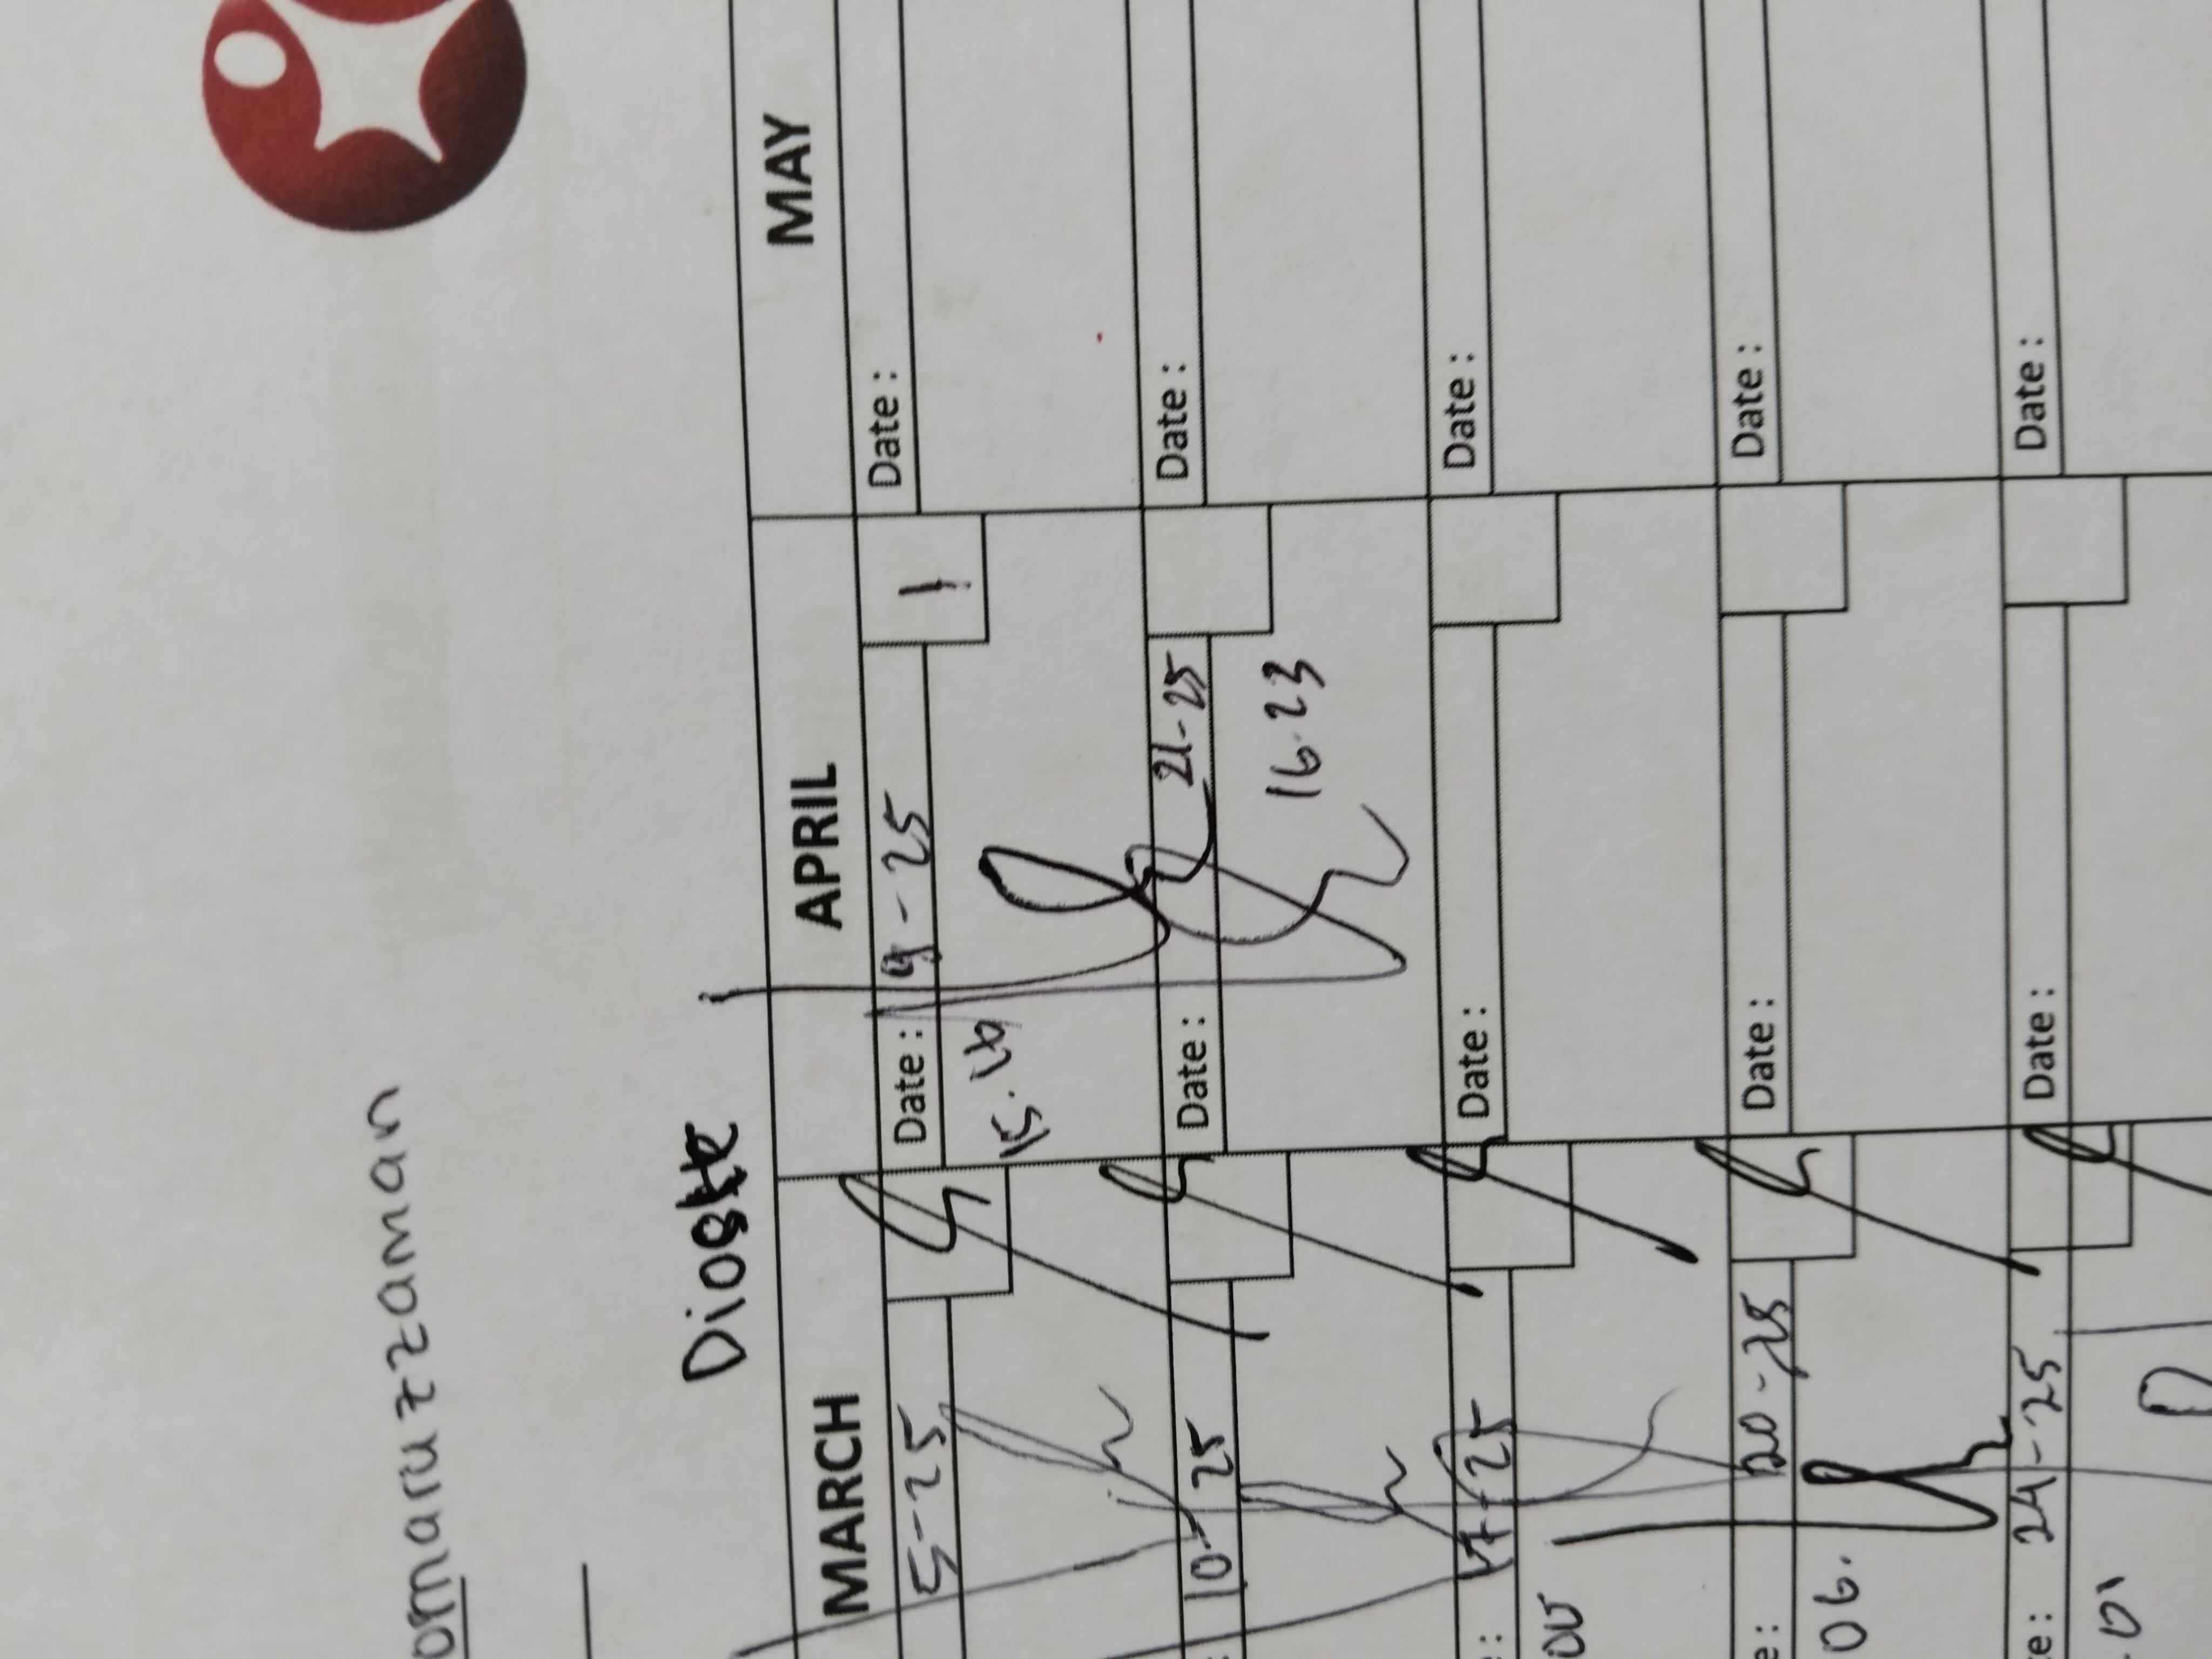 omaruzzaman
MARCH APRIL MAY
5-25 Date: 9-25 1 Date:
15.
10-25 Date: 21-25 Date:
16.23
17-25 Date: Date:
20-25 Date: Date:
06.
24-25 Date: Date:
.01